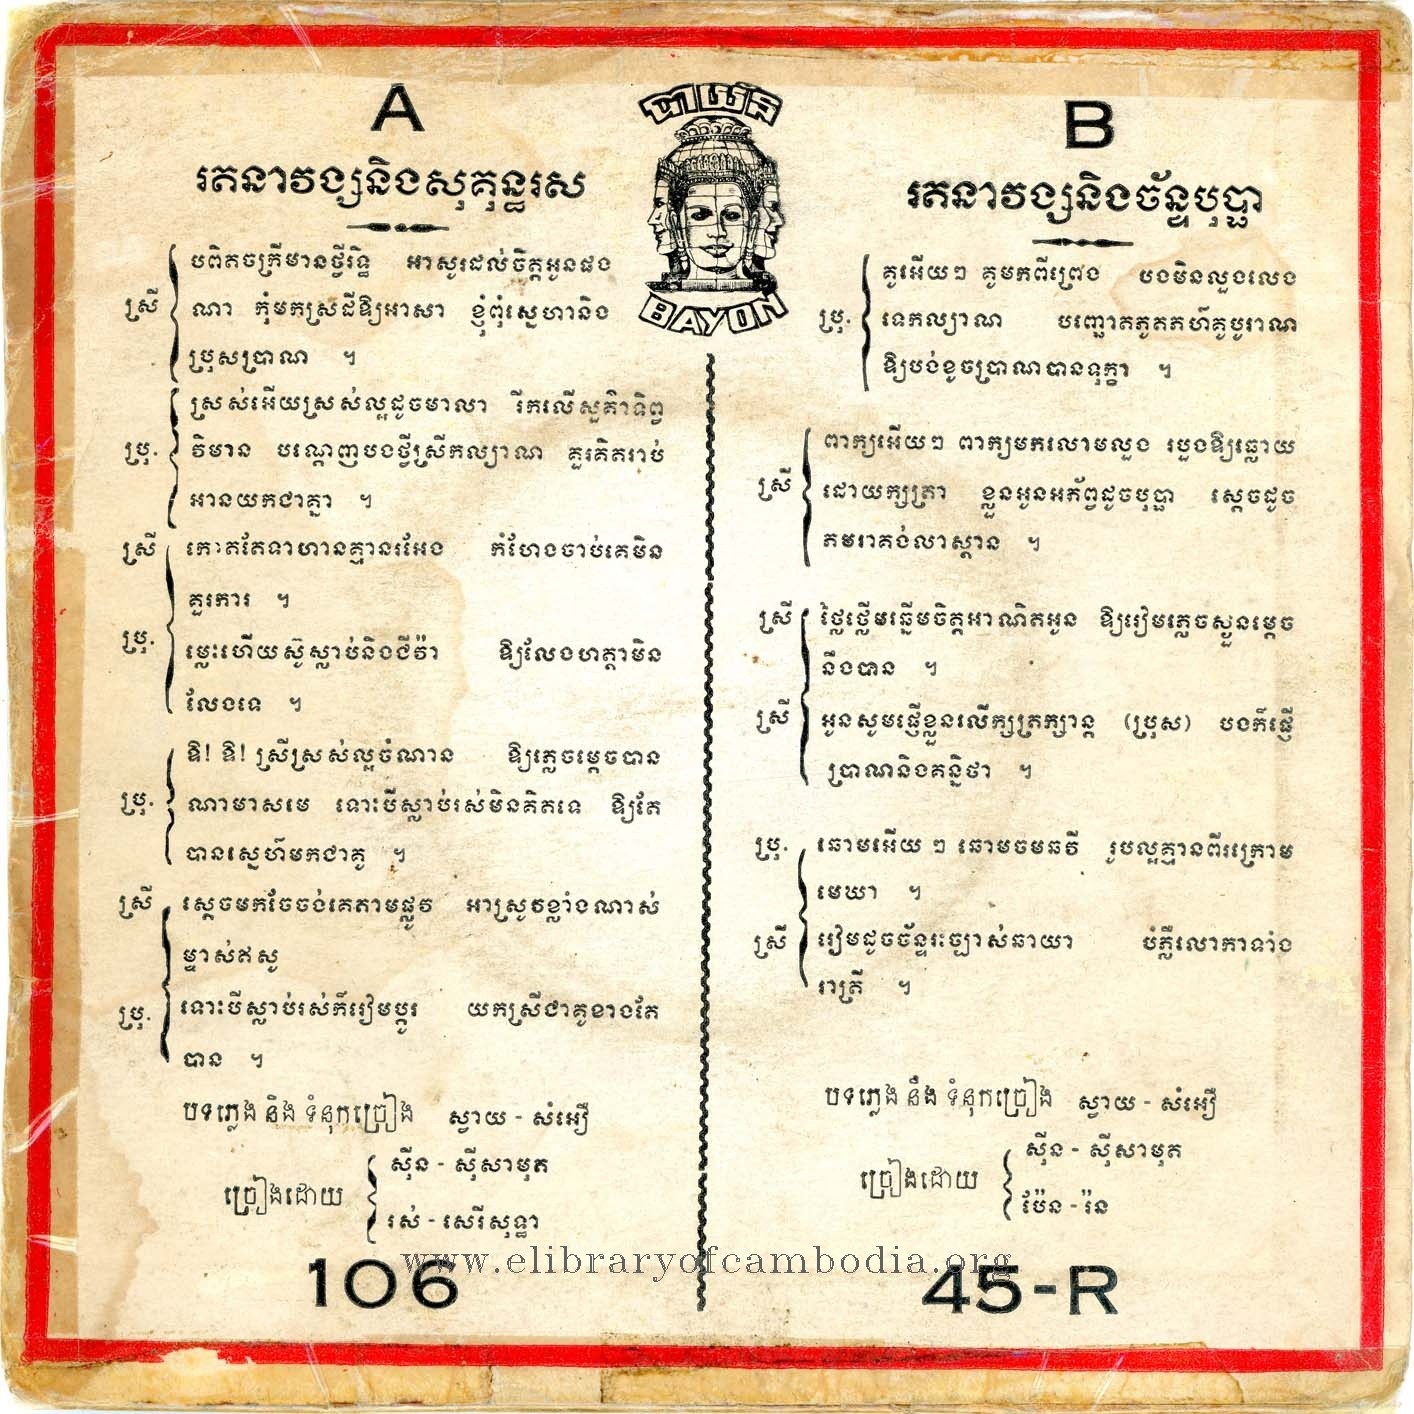 A
រតនាវង្សនិងសុគុន្ធរស
ស្រី
បពិតចក្រីមានថ្វីរិទ្ធិ អាសូរដល់ចិត្តអូនផង
ណា កុំមកស្រដីឱ្យអាសា ខ្ញុំពុំស្នេហានិង
ប្រុសប្រាណ ។
ប្រុ.
ស្រស់អើយស្រស់ល្អដូចមាលា រីកលើសួគ៌ាទិព្វ
វិមាន បណ្ដេញបងថ្វីស្រីកល្យាណ គួរគិតរាប់
អានយកជាគ្នា ។
ស្រី
កោតតែទាហានគ្មានរអែង កំហែងចាប់គេមិន
គួរការ ។
ប្រុ.
ម្លេះហើយស៊ូស្លាប់និងជីវ៉ា ឱ្យលែងហត្ថាមិន
លែងទេ ។
ប្រុ.
ឱ! ឱ! ស្រីស្រស់ល្អចំណាន ឱ្យភ្លេចម្ដេចបាន
ណាមាសមេ ទោះបីស្លាប់រស់មិនគិតទេ ឱ្យតែ
បានស្នេហ៍មកជាគូ ។
ស្រី
ស្ដេចមកចែចង់គេតាមផ្លូវ អាស្រូវខ្លាំងណាស់
ម្ចាស់ឥសូ
ប្រុ.
ទោះបីស្លាប់រស់ក៏រៀមប្ដូរ យកស្រីជាគូខាងតែ
បាន ។
បទភ្លេង និង ទំនុកច្រៀង ស្វាយ - សំអឿ
ច្រៀងដោយ
ស៊ីន - ស៊ីសាមុត
រស់ - សេរីសុទ្ធា
106
បាយ័ន
BAYON
B
រតនាវង្សនិងច័ន្ទបុប្ផា
ប្រុ.
គូអើយៗ គូមកពីព្រេង បងមិនលួងលេង
ទេកល្យាណ បញ្ឆោតភូតភហ៍គូបូរាណ
ឱ្យបង់ខូចប្រាណបានទុក្ខា ។
ស្រី
ពាក្យអើយៗ ពាក្យមកលោមលួង របួងឱ្យឆ្លោយ
ដោយក្សត្រា ខ្លួនអូនអភ័ព្វដូចបុប្ផា ស្ដេចដូច
តមរាគង់លាស្ថាន ។
ស្រី
ថ្លៃថ្លើមឆ្នើមចិត្តអាណិតអូន ឱ្យរៀមភ្លេចស្ងួនម្ដេច
នឹងបាន ។
ស្រី
អូនសូមផ្ញើខ្លួនលើក្សត្រក្សាន្ត (ប្រុស) បងក៏ផ្ញើ
ប្រាណនិងគន្និថា ។
ប្រុ.
ឆោមអើយ ៗ ឆោមចមឆវី រូបល្អគ្មានពីរក្រោម
មេឃា ។
ស្រី
រៀមដូចច័ន្ទរះច្បាស់ឆាយា បំភ្លឺលោកាទាំង
រាត្រី ។
បទភ្លេង នឹង ទំនុកច្រៀង ស្វាយ - សំអឿ
ច្រៀងដោយ
ស៊ីន - ស៊ីសាមុត
ប៉ែន - រ៉ន
45-R
www.elibraryofcambodia.org